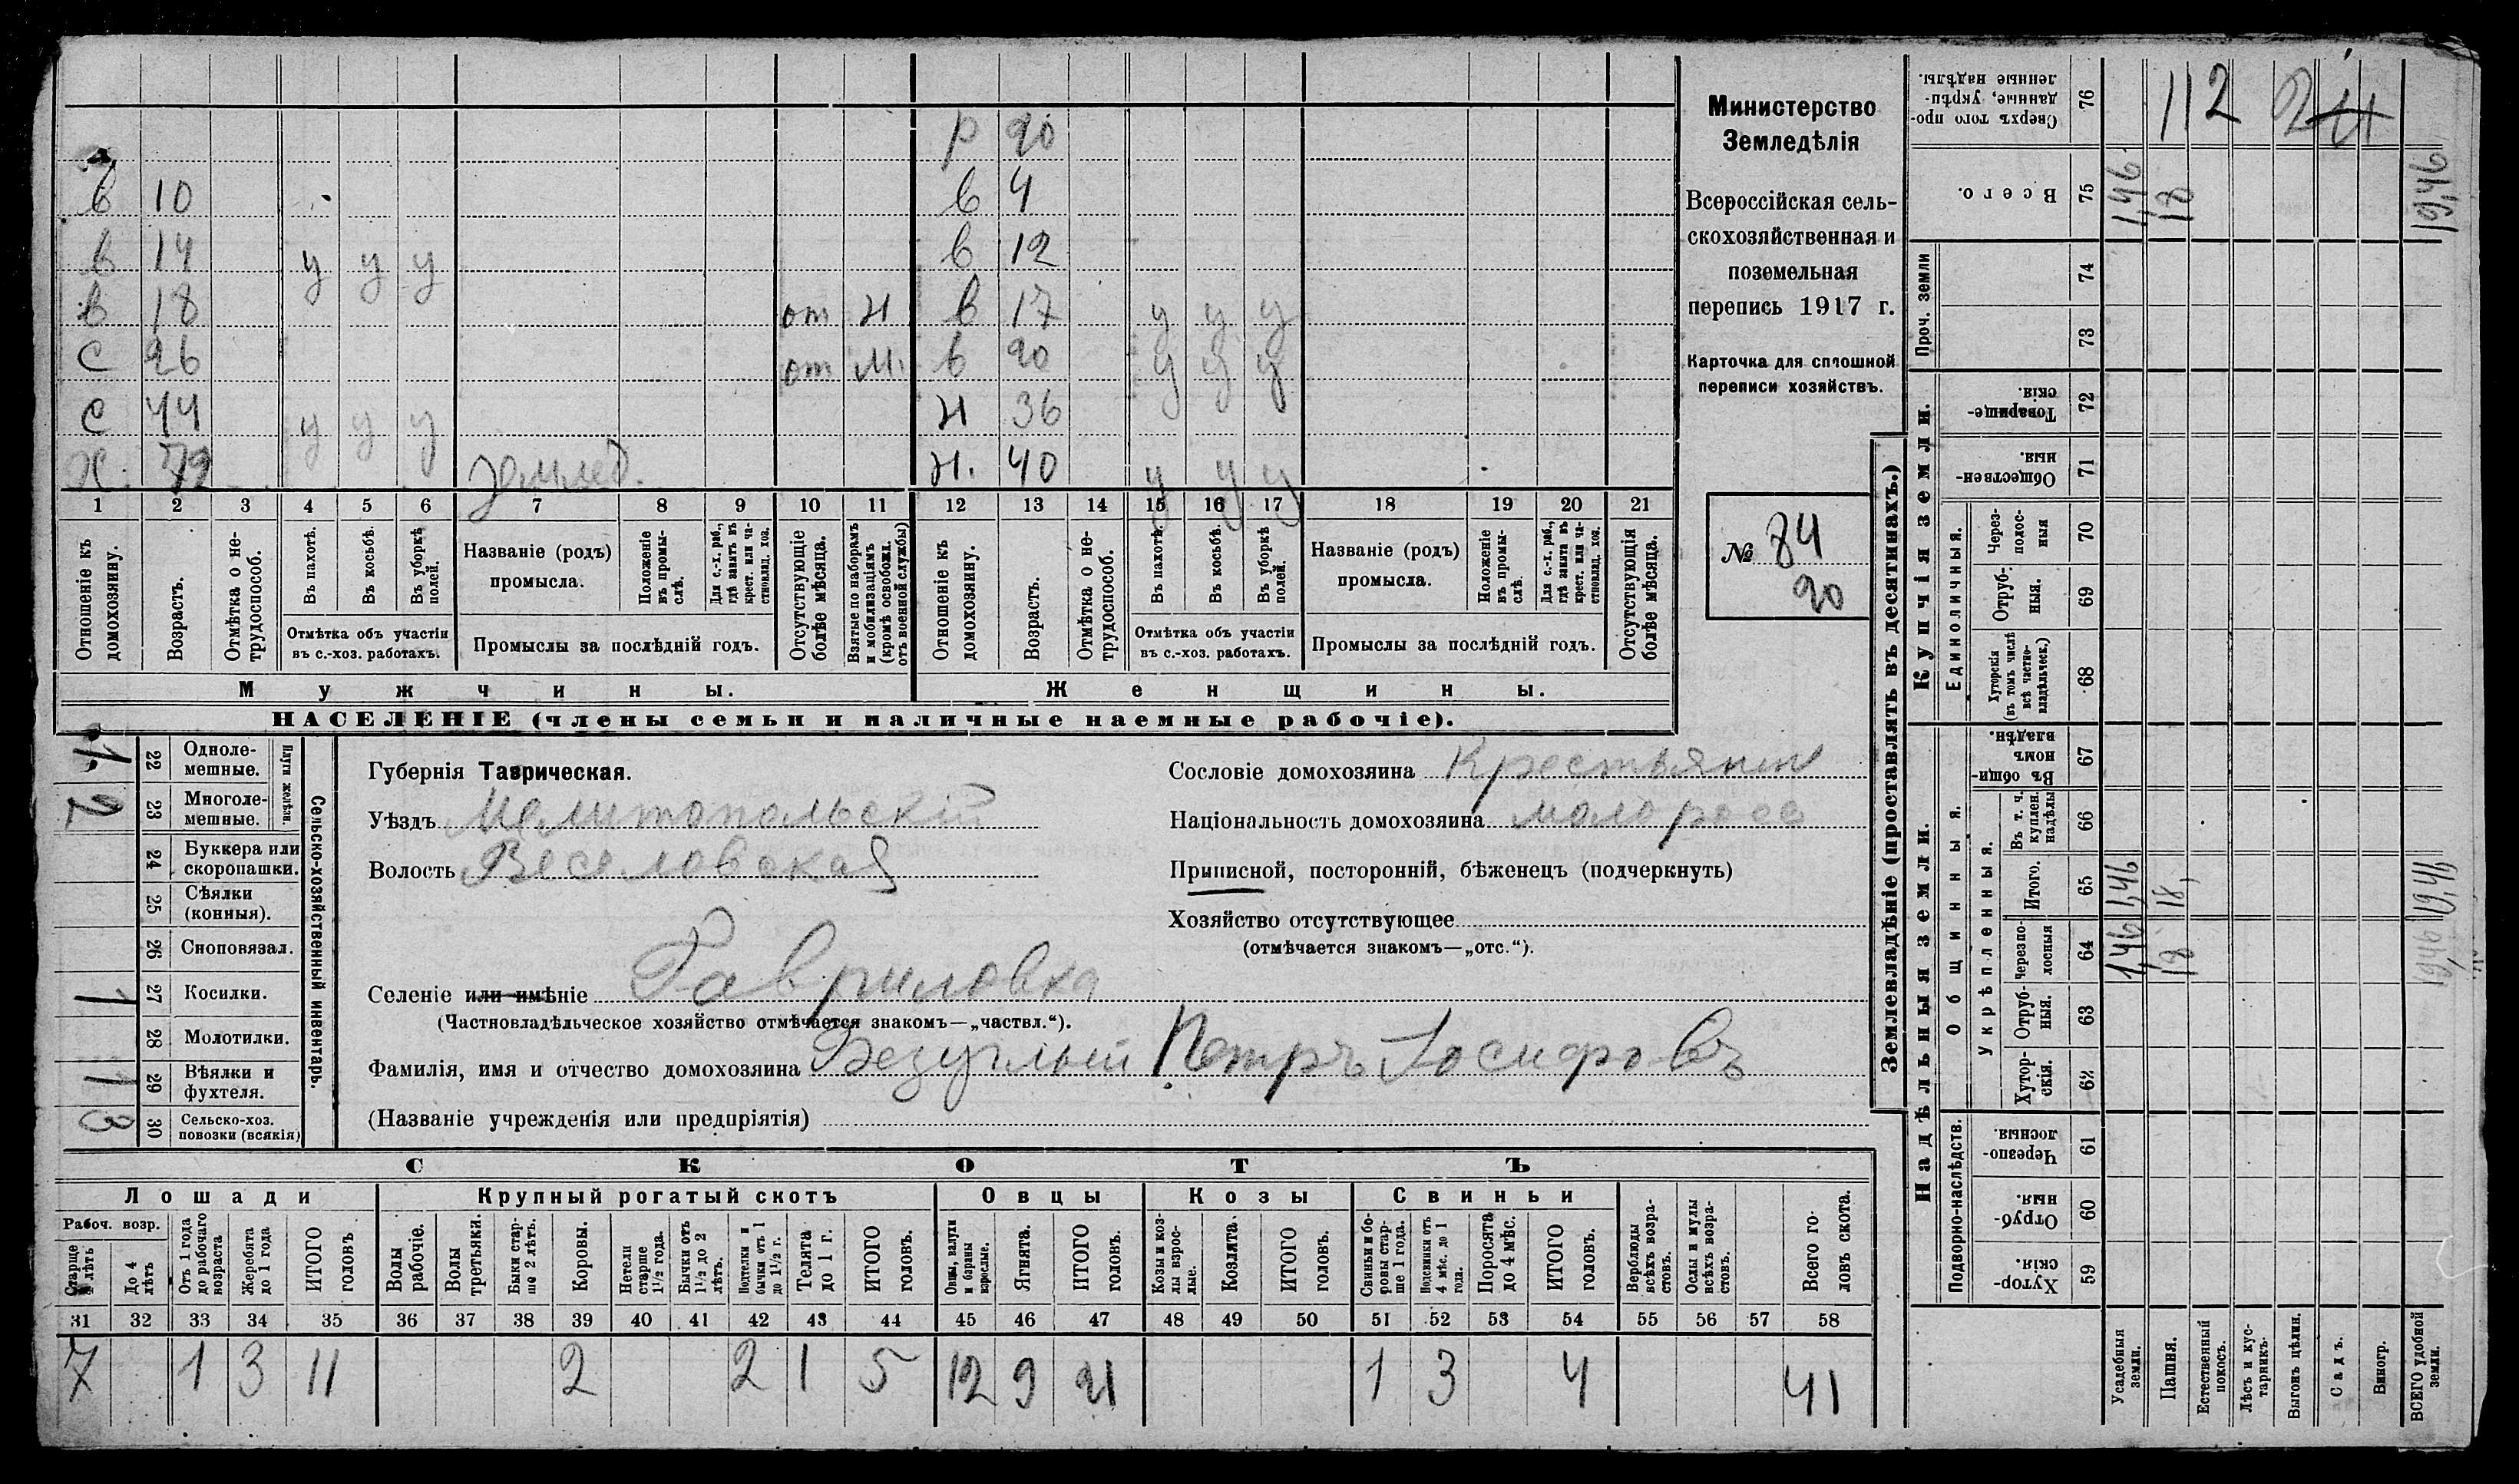 Р 20
в 10 в 4
в 14 у у у в 12
в 18 от н в 17 у у у
с 26 от м. в 20 у у у
с 44 у у у н 36
Х. 72 землед. н. 40 у у у
1 2 3 4 5 6 7 8 9 10 11 12 13 14 15 16 17 18 19 20 21
Отношеніе къ домохозяину.
Возрастъ.
Отмѣтка о не-
трудоспособ.
Въ пахотѣ.
Въ косьбѣ.
Въ уборкѣ
полей.
Названіе (родъ)
промысла.
Положеніе
въ промы-
слѣ.
Для с.-х. раб.,
гдѣ занятъ въ
крест. или ча-
стновлад. хоз.
Отмѣтка объ участіи
въ с.-хоз. работахъ.
Промыслы за послѣдній годъ.
Отсутствующіе
болѣе мѣсяца.
Взятые по наборамъ
и мобилизаціямъ
(кромѣ освобожд.
отъ военной службы)
Отношеніе къ
домохозяину.
Возрастъ.
Отмѣтка о не-
трудоспособ.
Въ пахотѣ.
Въ косьбѣ.
Въ уборкѣ
полей.
Названіе (родъ)
промысла.
Положеніе
въ промы-
слѣ.
Для с.-х. раб.,
гдѣ занята въ
крест. или ча-
стновлад. хоз.
Отмѣтка объ участіи
въ с.-хоз. работахъ.
Промыслы за послѣдній годъ.
Отсутствующія
болѣе мѣсяца.
Мужчины.
Женщины.
НАСЕЛЕНІЕ (члены семьи и наличные наемные рабочіе).
Министерство
Земледѣлія
Всероссійская сель-
скохозяйственная и
поземельная
перепись 1917 г.
Карточка для сплошной
переписи хозяйствъ.
№ 84
20
Сельско-хозяйственный инвентарь.
Плуги желѣзн.
1 22 Одноле-
мешные.
2 23 Многоле-
мешные.
24 Буккера или
скоропашки.
25 Сѣялки
(конныя).
26 Сноповязал.
1 27 Косилки.
28 Молотилки.
1 29 Вѣялки и
фухтеля.
3 30 Сельско-хоз.
повозки (всякія)
Губернія Таврическая.
Уѣздъ Мелитопольскій
Волость Веселовская
Селеніе или имѣніе Гавриловка
(Частновладѣльческое хозяйство отмѣчается знакомъ—„частвл.“).
Фамилія, имя и отчество домохозяина Безуглый Петръ Іосифовъ
(Названіе учрежденія или предпріятія)
Сословіе домохозяина Крестьянин
Національность домохозяина малоросс
Приписной, посторонній, бѣженецъ (подчеркнуть)
Хозяйство отсутствующее
(отмѣчается знакомъ—„отс.“).
СКОТЪ
Лошади Крупный рогатый скотъ Овцы Козы Свиньи
Рабоч. возр.
Старше
4 лѣтъ
До 4
лѣтъ
Отъ 1 года
до рабочаго
возраста
Жеребята
до 1 года
ИТОГО
головъ
Волы
рабочіе.
Волы
третьяки.
Быки стар-
ше 2 лѣтъ.
Коровы.
Нетели
старше
1½ года.
Бычки отъ
1½ до 2
лѣтъ.
Подтелки и
бычки отъ 1
до 1½ г.
Телята
до 1 г.
ИТОГО
головъ.
Овцы, валухи
и бараны
взрослые.
Ягнята.
ИТОГО
головъ.
Козы и коз-
лы взрос-
лые.
Козлята.
ИТОГО
головъ.
Свиньи и бо-
ровы стар-
ше 1 года.
Подсвинки отъ
4 мѣс. до 1
года.
Поросята
до 4 мѣс.
ИТОГО
головъ.
Верблюды
всѣхъ возра-
стовъ.
Ослы и мулы
всѣхъ возра-
стовъ.
Всего го-
ловъ скота.
31 32 33 34 35 36 37 38 39 40 41 42 43 44 45 46 47 48 49 50 51 52 53 54 55 56 57 58
7 1 3 11 2 2 1 5 12 9 21 1 3 4 41
Землевладѣніе (проставлять въ десятинахъ.)
Купчія земли.
Надѣльныя земли.
76 Сверхъ того про-
данные, укрѣп-
ленные надѣлы.
112 24
75 Всего. 1,46 18 19,46
Проч. земли
74
73
72 Товарище-
скія.
71 Обществен-
ныя.
Единоличныя.
70 Через-
полос-
ныя
69 Отруб-
ныя.
68 Хуторскія
(въ томъ числѣ
всѣ частно-
владѣльческ.)
Общинныя.
67 Въ общи-
номъ
владѣн.
Укрѣпленныя.
66 Въ т. ч.
куплен.
надѣлы
65 Итого. 1,46 18, 19,46
64 Черезпо-
лосныя 1,46 18 19,46
63 Отруб-
ныя.
62 Хутор-
скія.
Подворно-наслѣдств.
61 Черезпо-
лосныя.
60 Отруб-
ныя.
59 Хутор-
скія.
Усадебныя
земли.
Пашня.
Естественный
покосъ.
Лѣсъ и кус-
тарникъ.
Выгонъ цѣлин.
Садъ.
Виногр.
ВСЕГО удобной
земли.